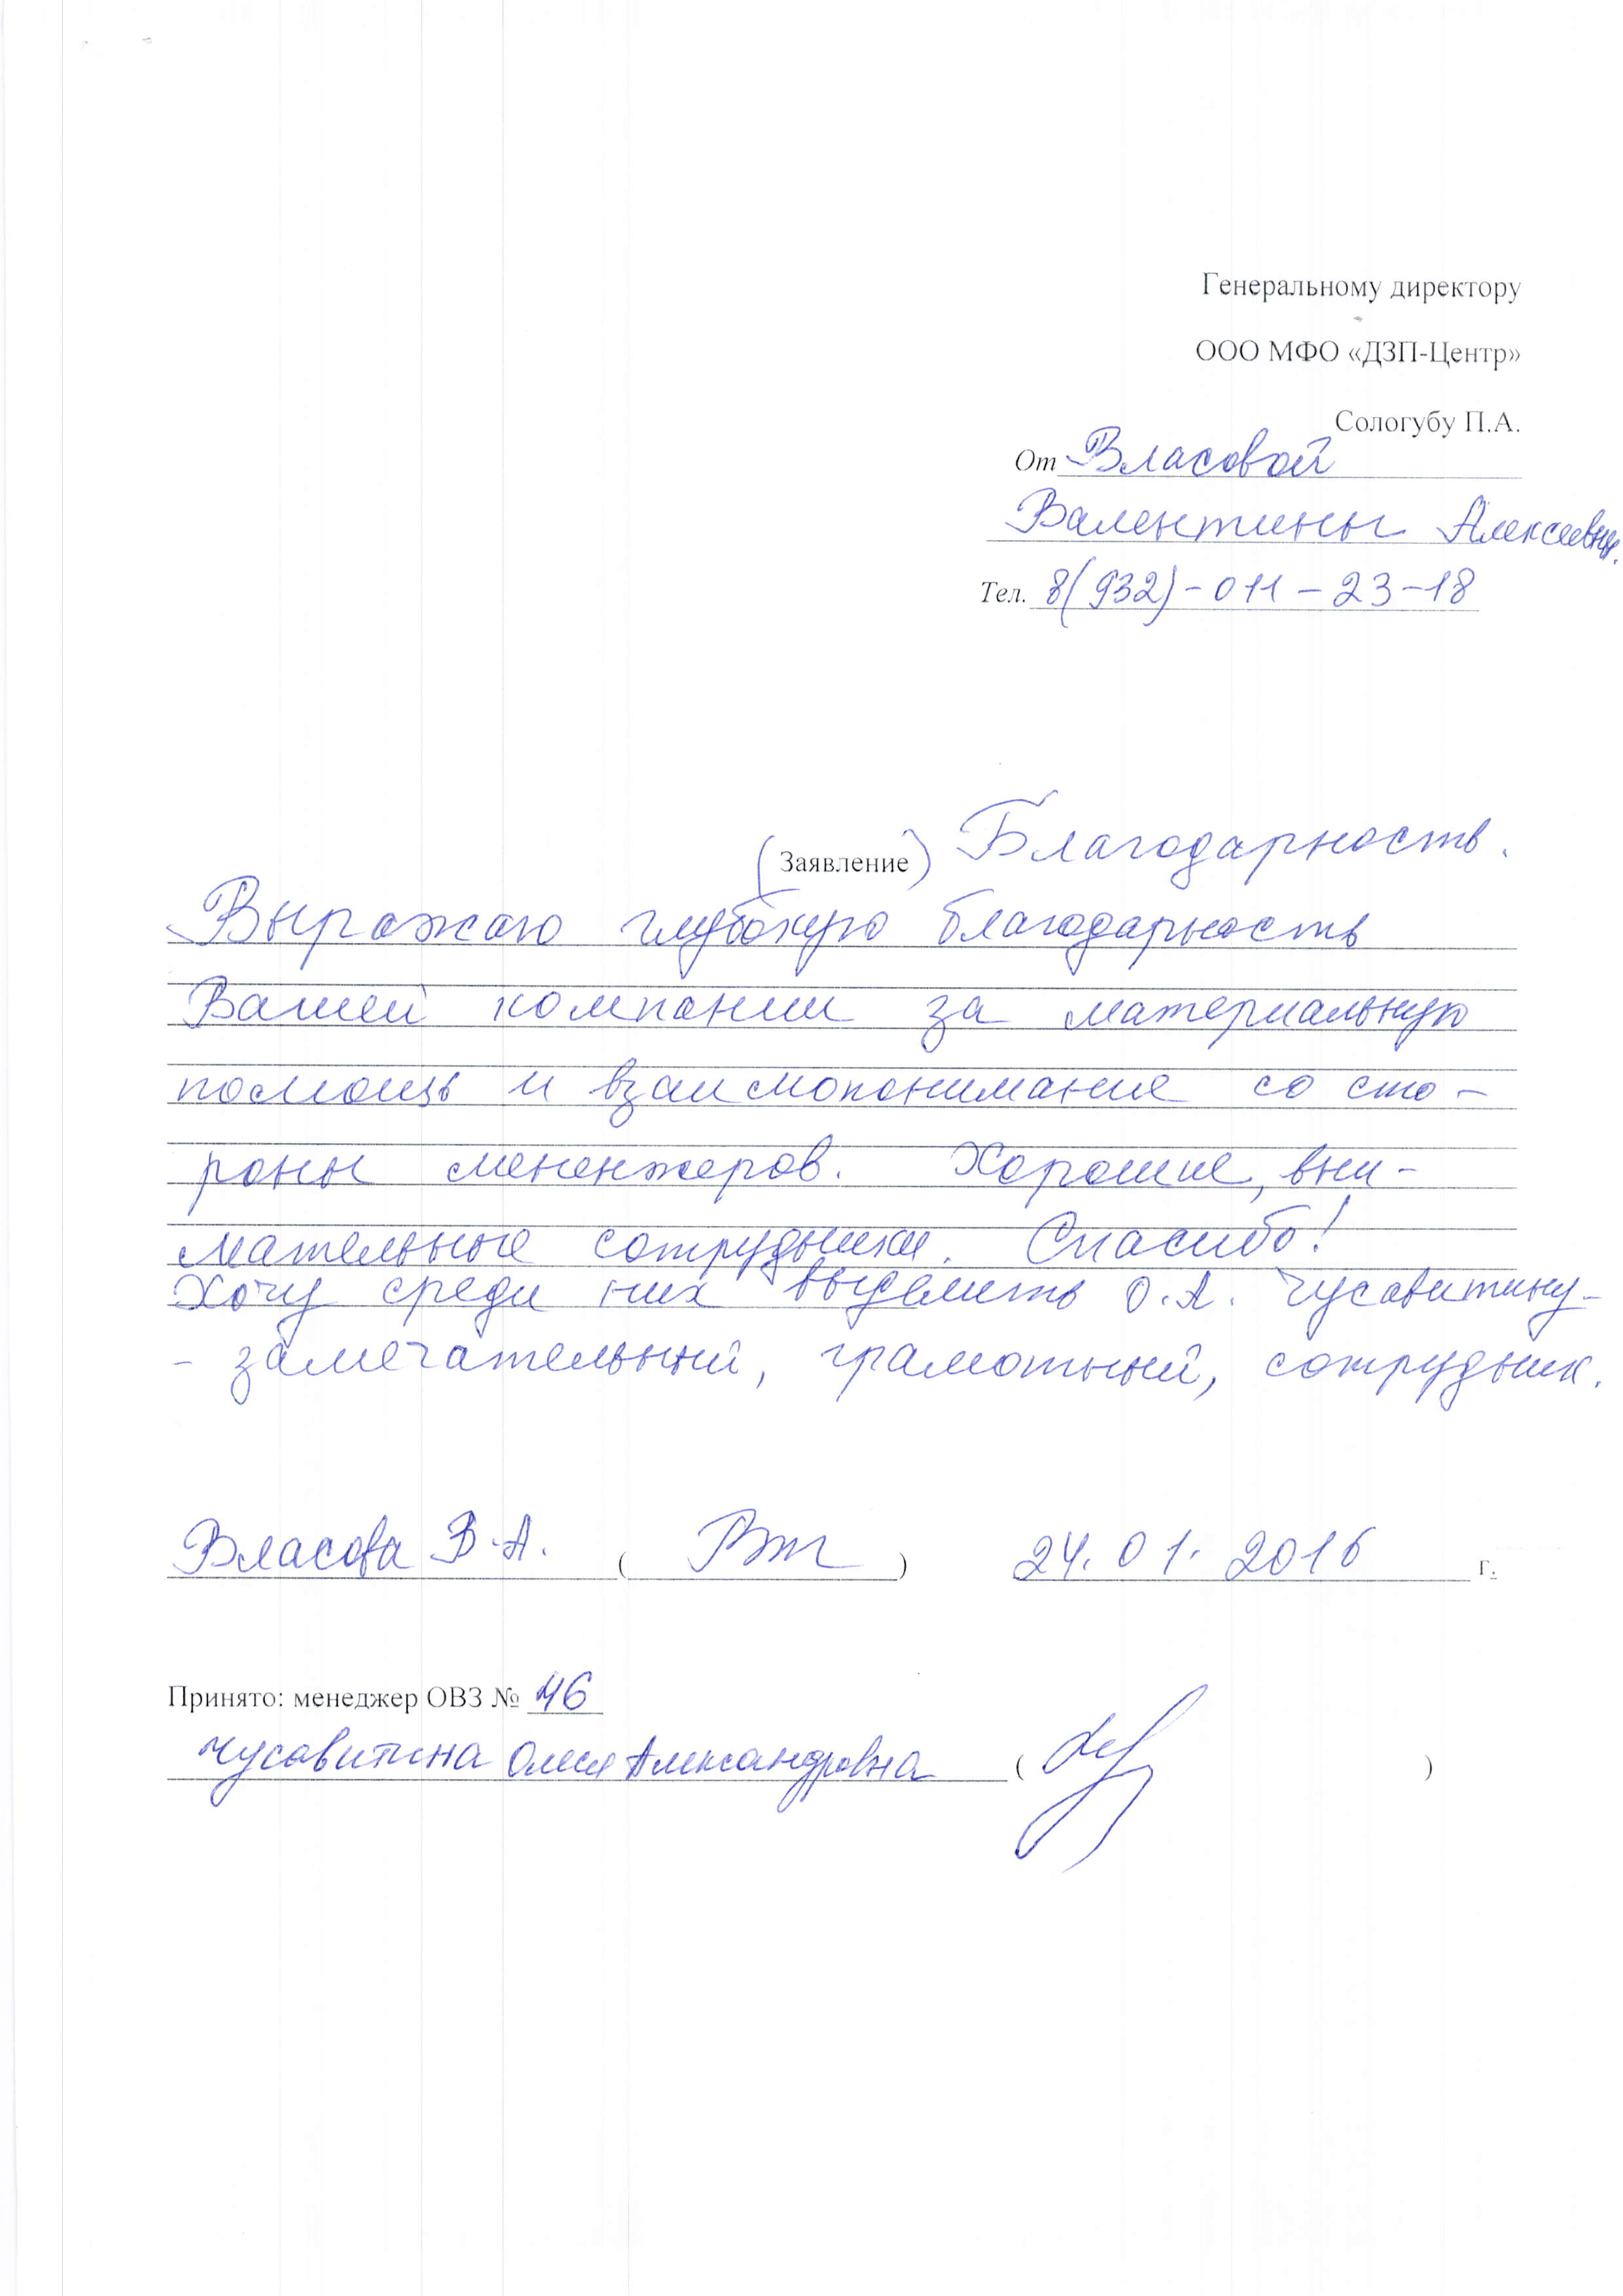 Генеральному директору
ООО МФО «ДЗП-Центр»
Сологубу П.А.
От Власовой
Валентины Алексеевны.
Тел. 8(932)-011-23-18
(Заявление) Благодарность.
Выражаю глубокую благодарность
Вашей компании за материальную
помощь и взаимопонимание со сто-
роны мененжеров. Хорошие, вни-
мательные сотрудники. Спасибо!
Хочу среди них выделить О.А. Чусавитину-
- замечательный, грамотный, сотрудник.
Власова В.А. ( ) 24.01.2016 г.
Принято: менеджер ОВЗ № 46
Чусавитина Олеся Александровна ( )